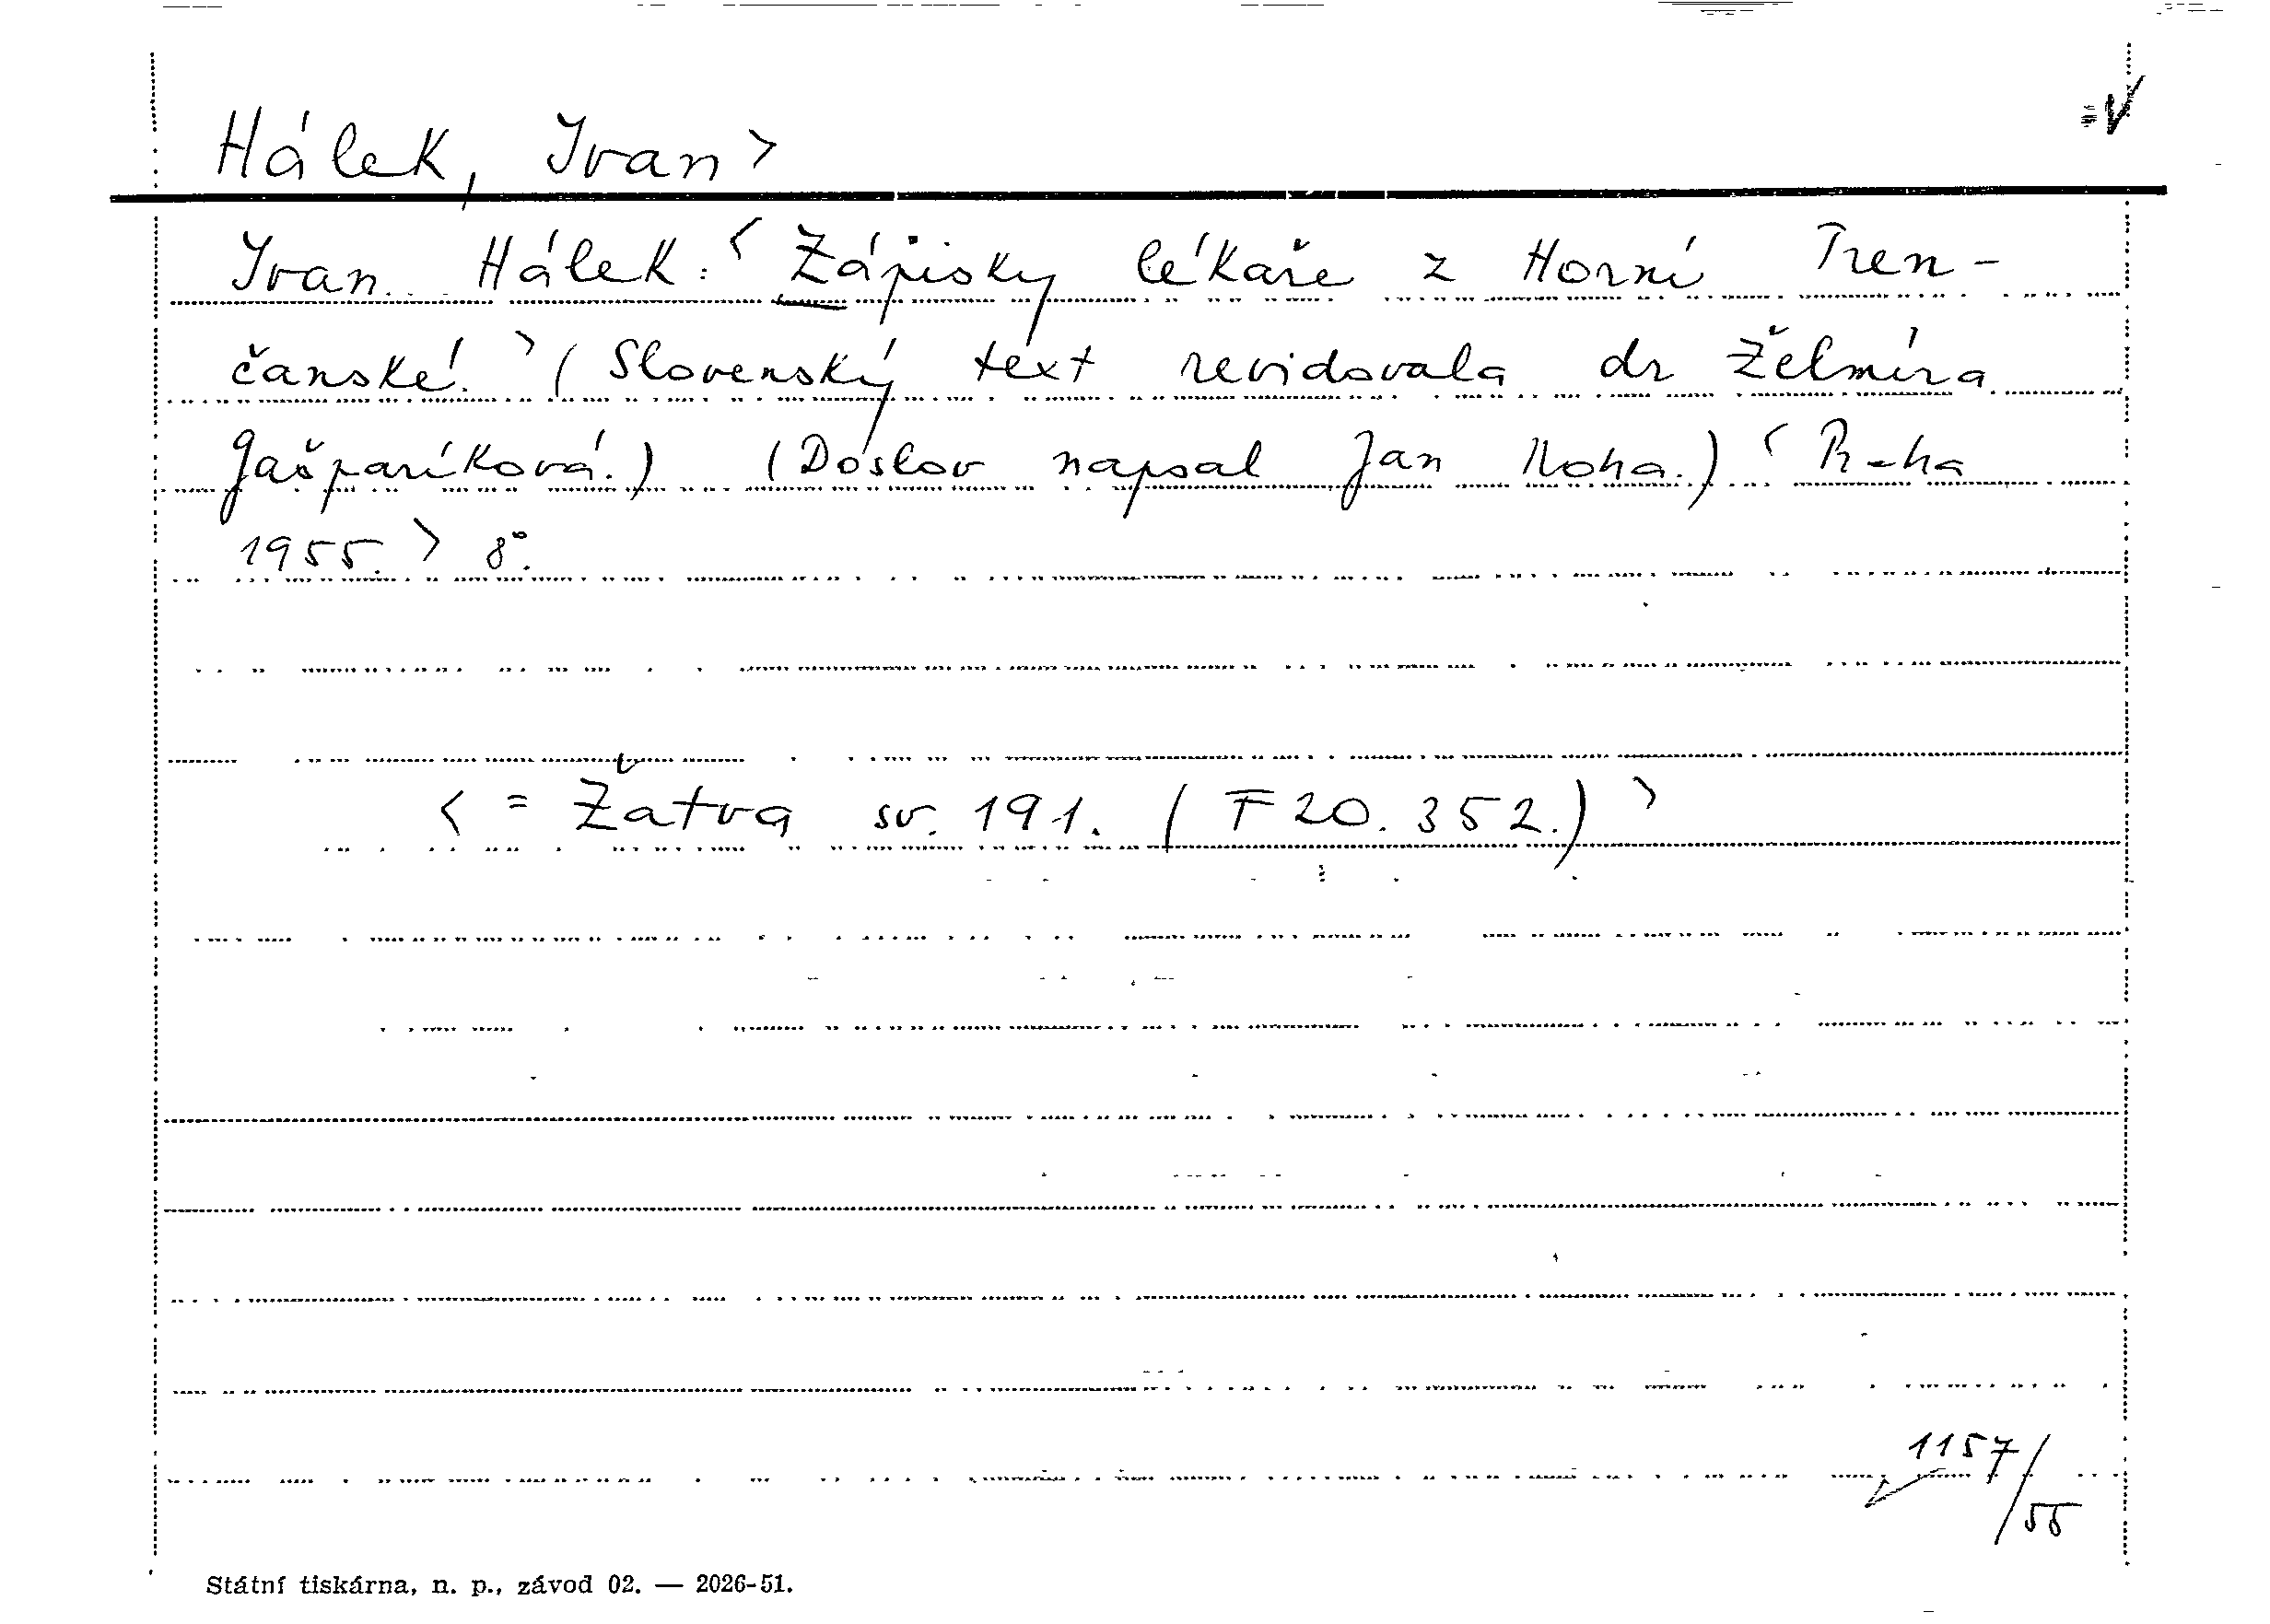 Hálek, Ivan>
Ivan Hálek: <Zápisky lékaře z Horní Tren-
čanské.> (Slovenský text revidovala dr Želmíra
Gašparíková.) (Doslov napsal Jan Noha.) <Praha
1955.> 8°.
<= Žatva sv. 191. (F 20.352.)>
1157/
55
Státní tiskárna, n. p., závod 02. — 2026-51.